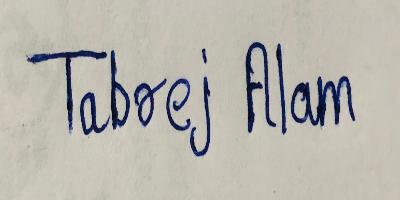 Tabrej Alam